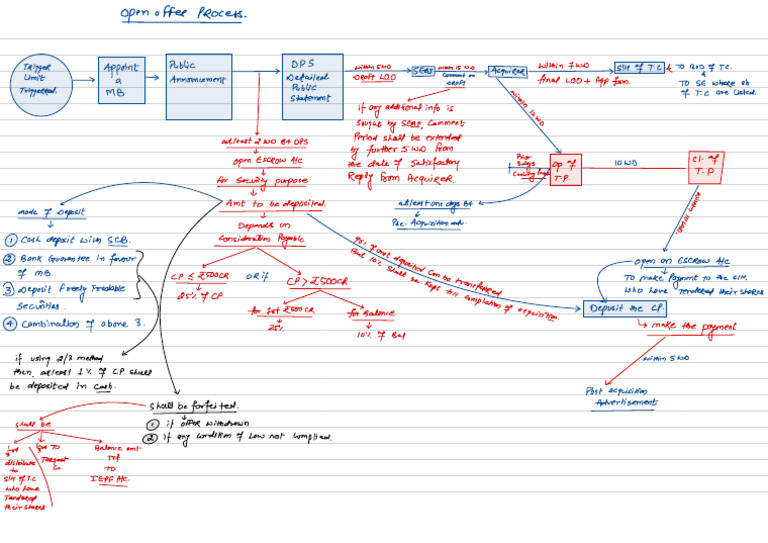 Open offer Process.
Trigger
Limit
Triggered.
Appoint
a
MB
Public
Announcement
DPS
Detailed
Public
Statement
within 5 WD
Draft LOO
SEBI
within 15 WD
Comment on
DRAFT
Acquirer
Within 7 WD
final LOO + App form.
SH of T.C
&
TO BOD of TC.
&
TO SE where sh
of T.C are listed.
if any additional info is
SEBI, Comment
Period shall be extended
by further 5 WD from
the date of Satisfactory
Reply form Acquirer
within 12 WD
atleast 2 WD B4 DPS
open ESCROW A/c
for Security purpose
Amt to be deposited.
Depends on
Consideration Payable
CP ≤ ₹500CR
25% of CP
OR if
CP > ₹500CR
for 1st ₹500CR
25%
for Balance
10% of Bal
Prior
3 days
op of
T.P
10 WD
Cl. of
T.P
atleast one day B4
Pre. Acquisition adv.
mode of Deposit
① Cash deposit with SCB.
② Bank Guarantee in favour
of MB.
③ Deposit Freely Tradable
Securities.
④ Combination of above 3.
if using 2/3 method
then, atleast 1% of CP shall
be deposited in Cash.
90% of amt deposited Can be transferred
But 10% Shall be kept till completion of acquisition
within 10 WD.
open an ESCROW A/c
To make Payment to the SH.
who have Tendered their shares
Deposit the CP.
make the payment
within 5 WD
Post acquisition
Advertisement
Shall be forfeited.
① if offer withdrawn
② if any condition of Law not complied.
shall be
1/3rd
distribute
to
SH of T.C
who have
Tendered
their shares
1/3rd To
Target
Co.
Balance amt
Trf
to
IEPF A/c.